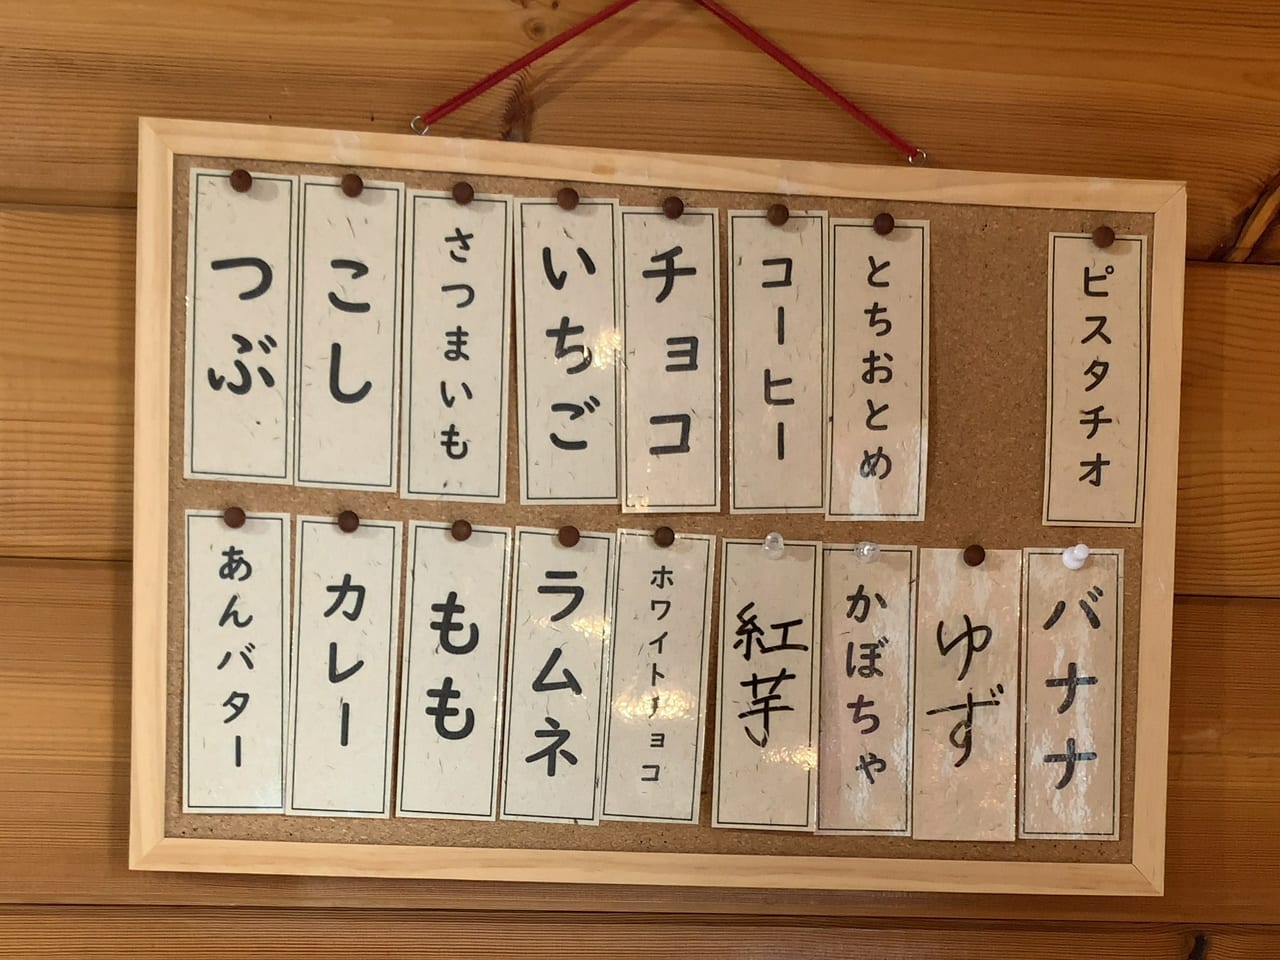 つぶ
こし
さつまいも
いちご
チョコ
コーヒー
とちおとめ
ピスタチオ
あんバター
カレー
もも
ラムネ
ホワイトチョコ
紅芋
かぼちゃ
ゆず
バナナ